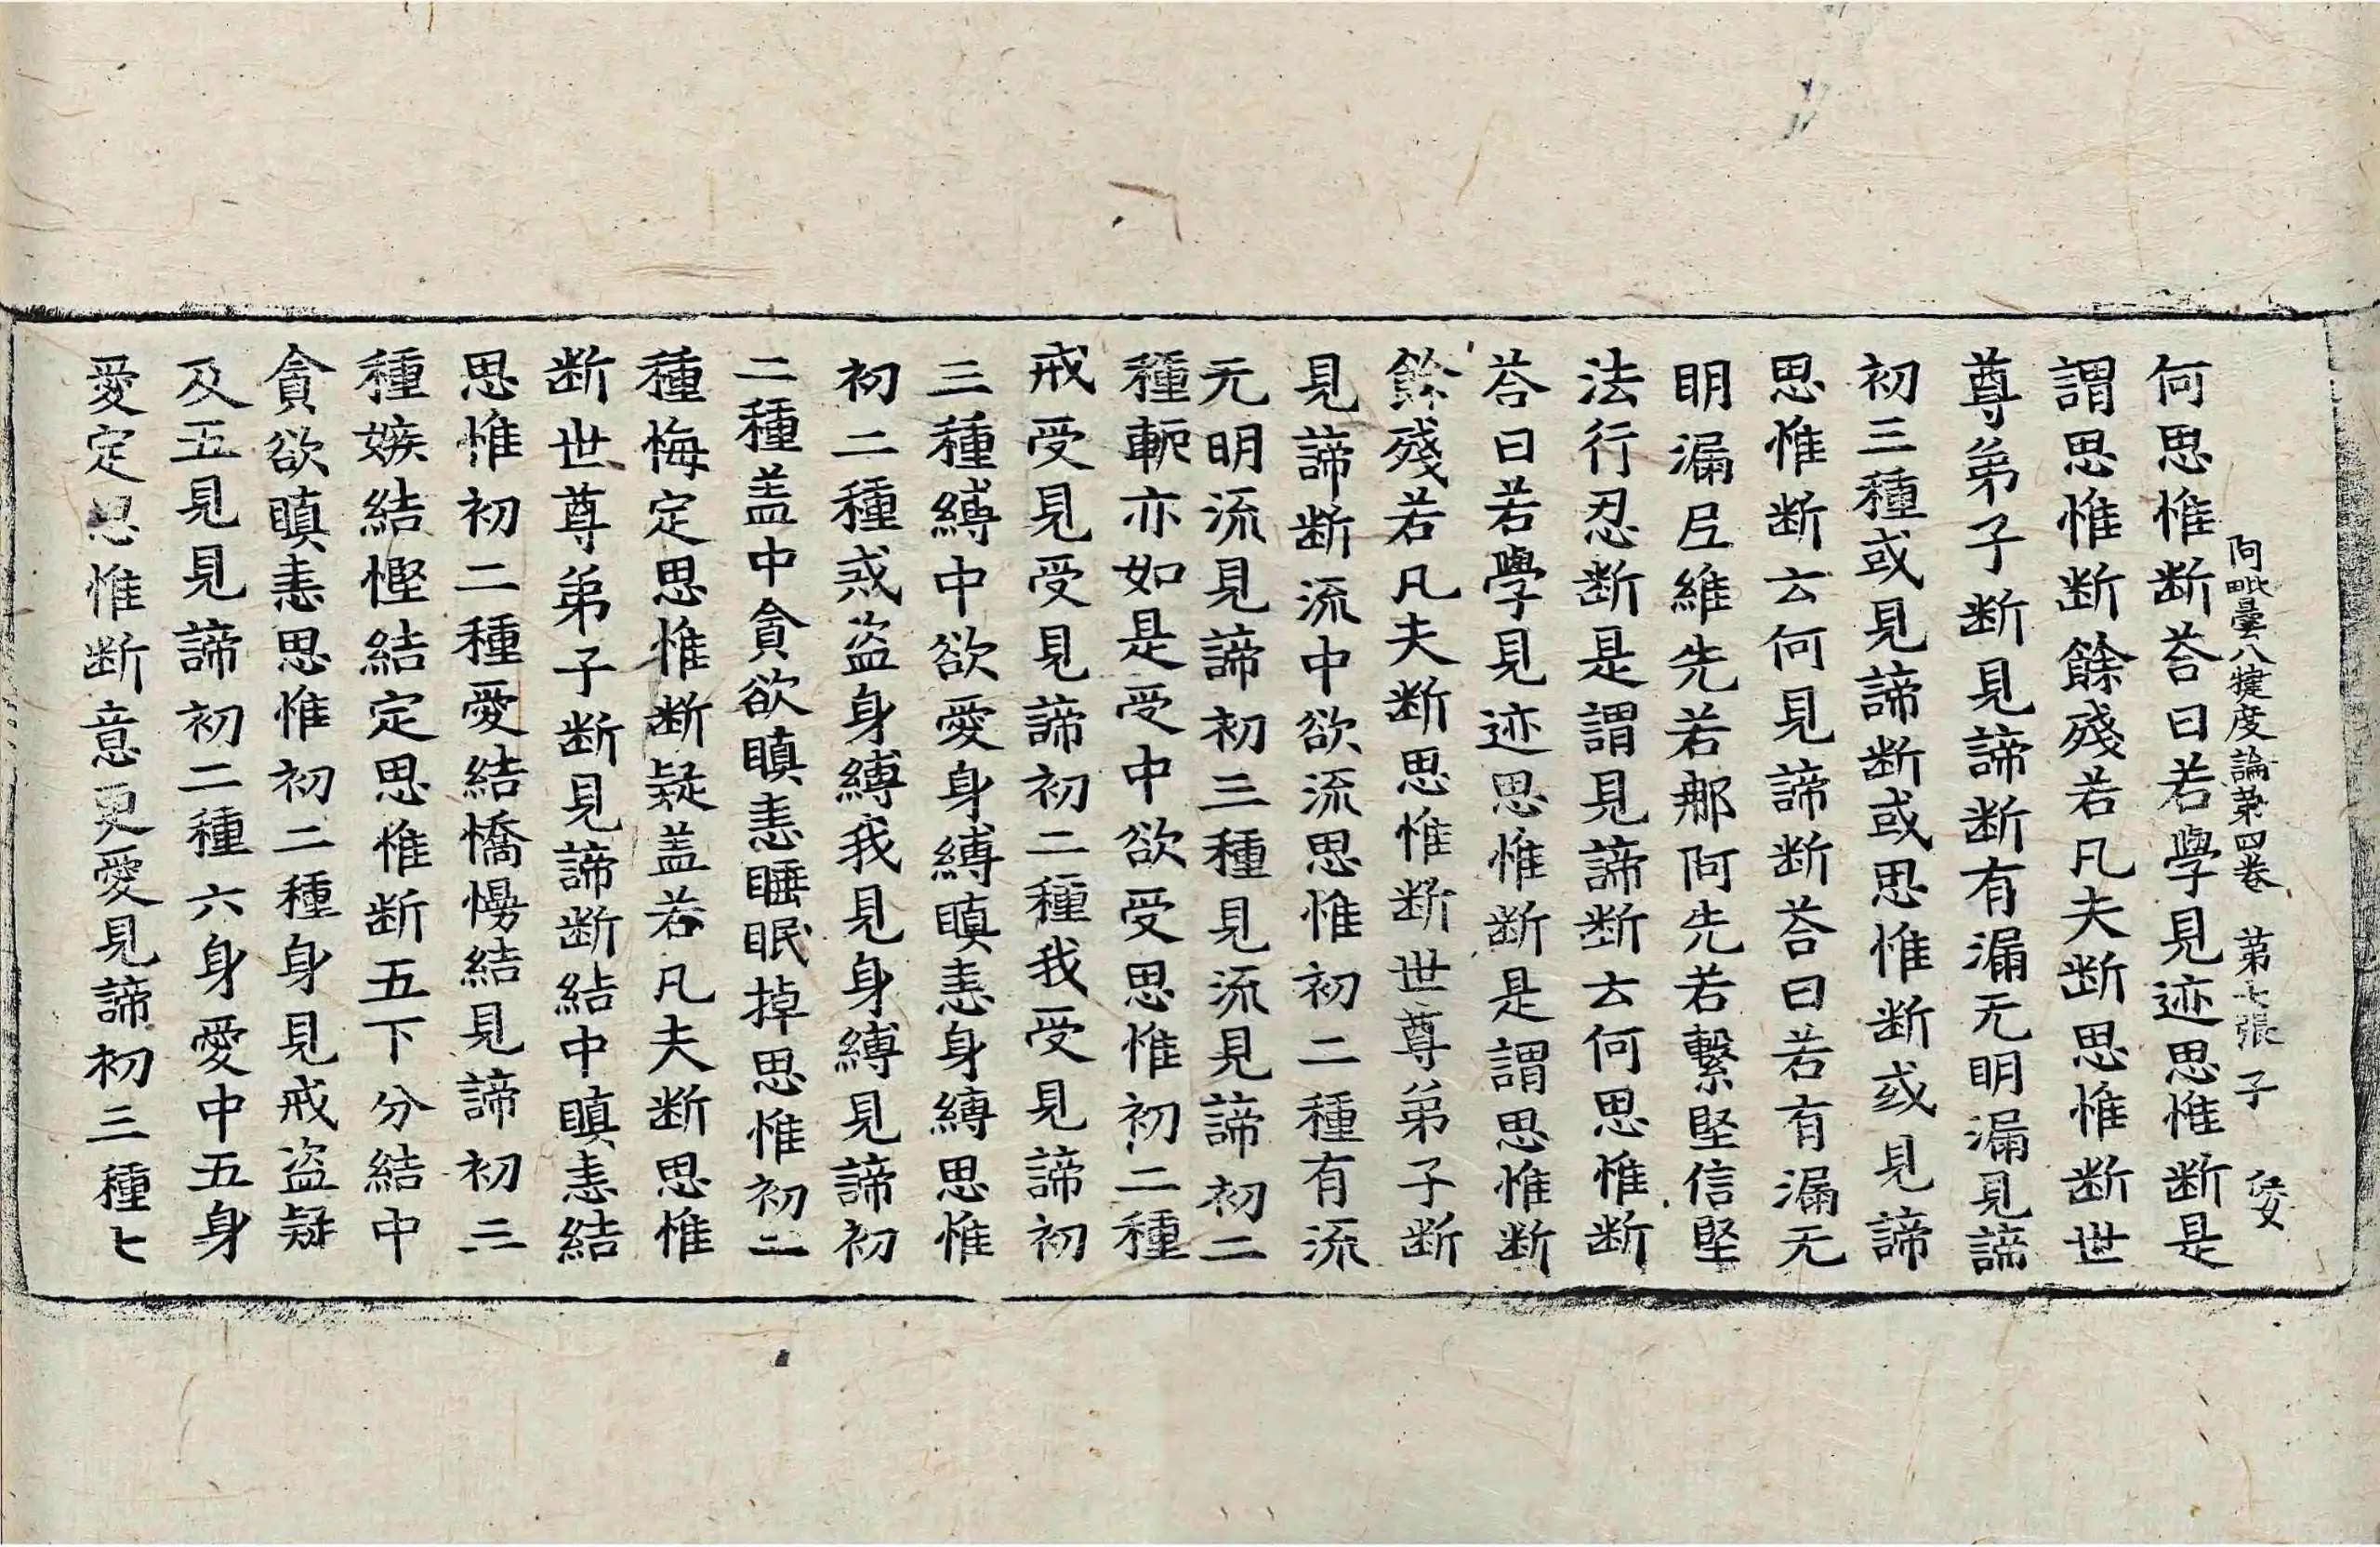 阿毗曇八犍度論苐四卷 苐七張 子
何思惟断荅曰若學見迹思惟断是
謂思惟断餘殘若凡夫断思惟断世
尊弟子断見諦断有漏无明漏見諦
初三種或見諦断或思惟断或見諦
思惟断云何見諦断荅曰若有漏无
明漏𡰱維先若郍阿先若繫堅信堅
法行忍断是謂見諦断云何思惟断
荅曰若學見迹思惟断是謂思惟断
餘殘若凡夫断思惟断世尊弟子断
見諦断流中欲流思惟初二種有流
无明流見諦初三種見流見諦初二
種軛亦如是受中欲受思惟初二種
戒受見受見諦初二種我受見諦初
三種縛中欲愛身縛瞋恚身縛思惟
初二種戒盗身縛我見身縛見諦初
二種盖中貪欲瞋恚睡眠掉思惟初二
種悔定思惟断疑盖若凡夫断思惟
断世尊弟子断見諦断結中瞋恚結
思惟初二種愛結憍慢結見諦初三
種嫉結慳結定思惟断五下分結中
貪欲瞋恚思惟初二種身見戒盗疑
及五見見諦初二種六身愛中五身
愛定思惟断意更愛見諦初三種七